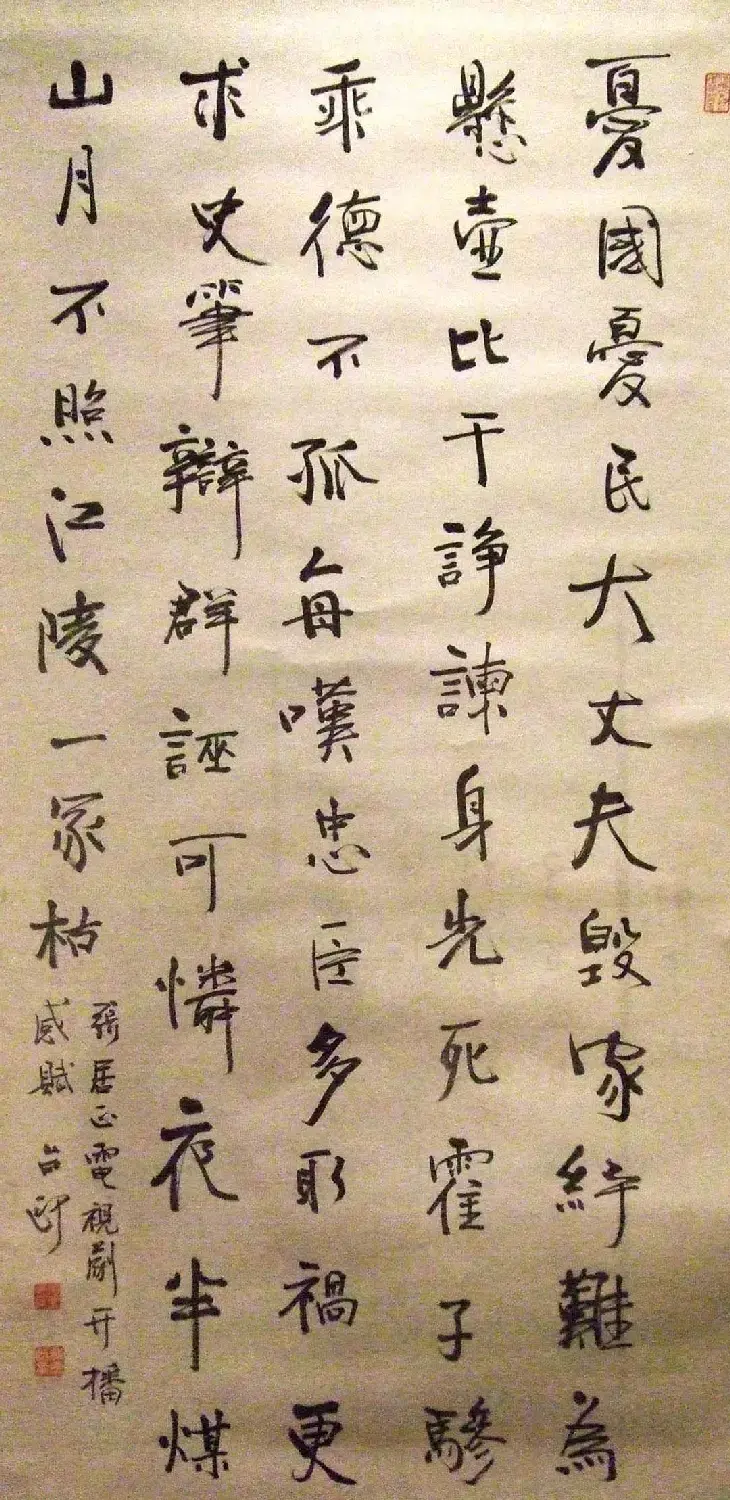 憂國憂民大丈夫毀家紓難為
懸壺比干諍諫身先死霍子驂
乘德不孤每嘆忠臣多取禍更
求史筆辯群誣可憐夜半煤
山月不照江陵一冢枯
張居正電視劇開播
感賦